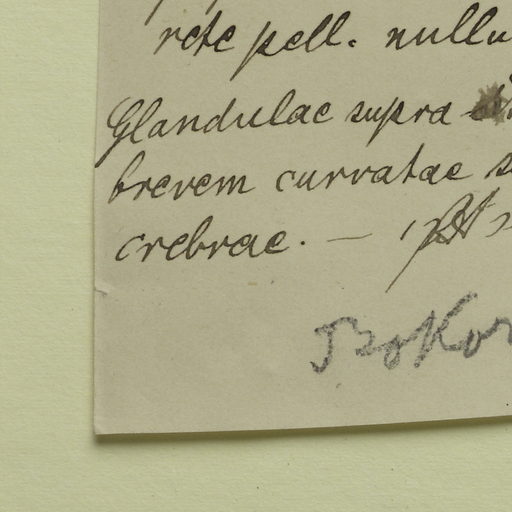 rete pell. nullu
Glandulae supra
brevem curvatae s
crebrae. —